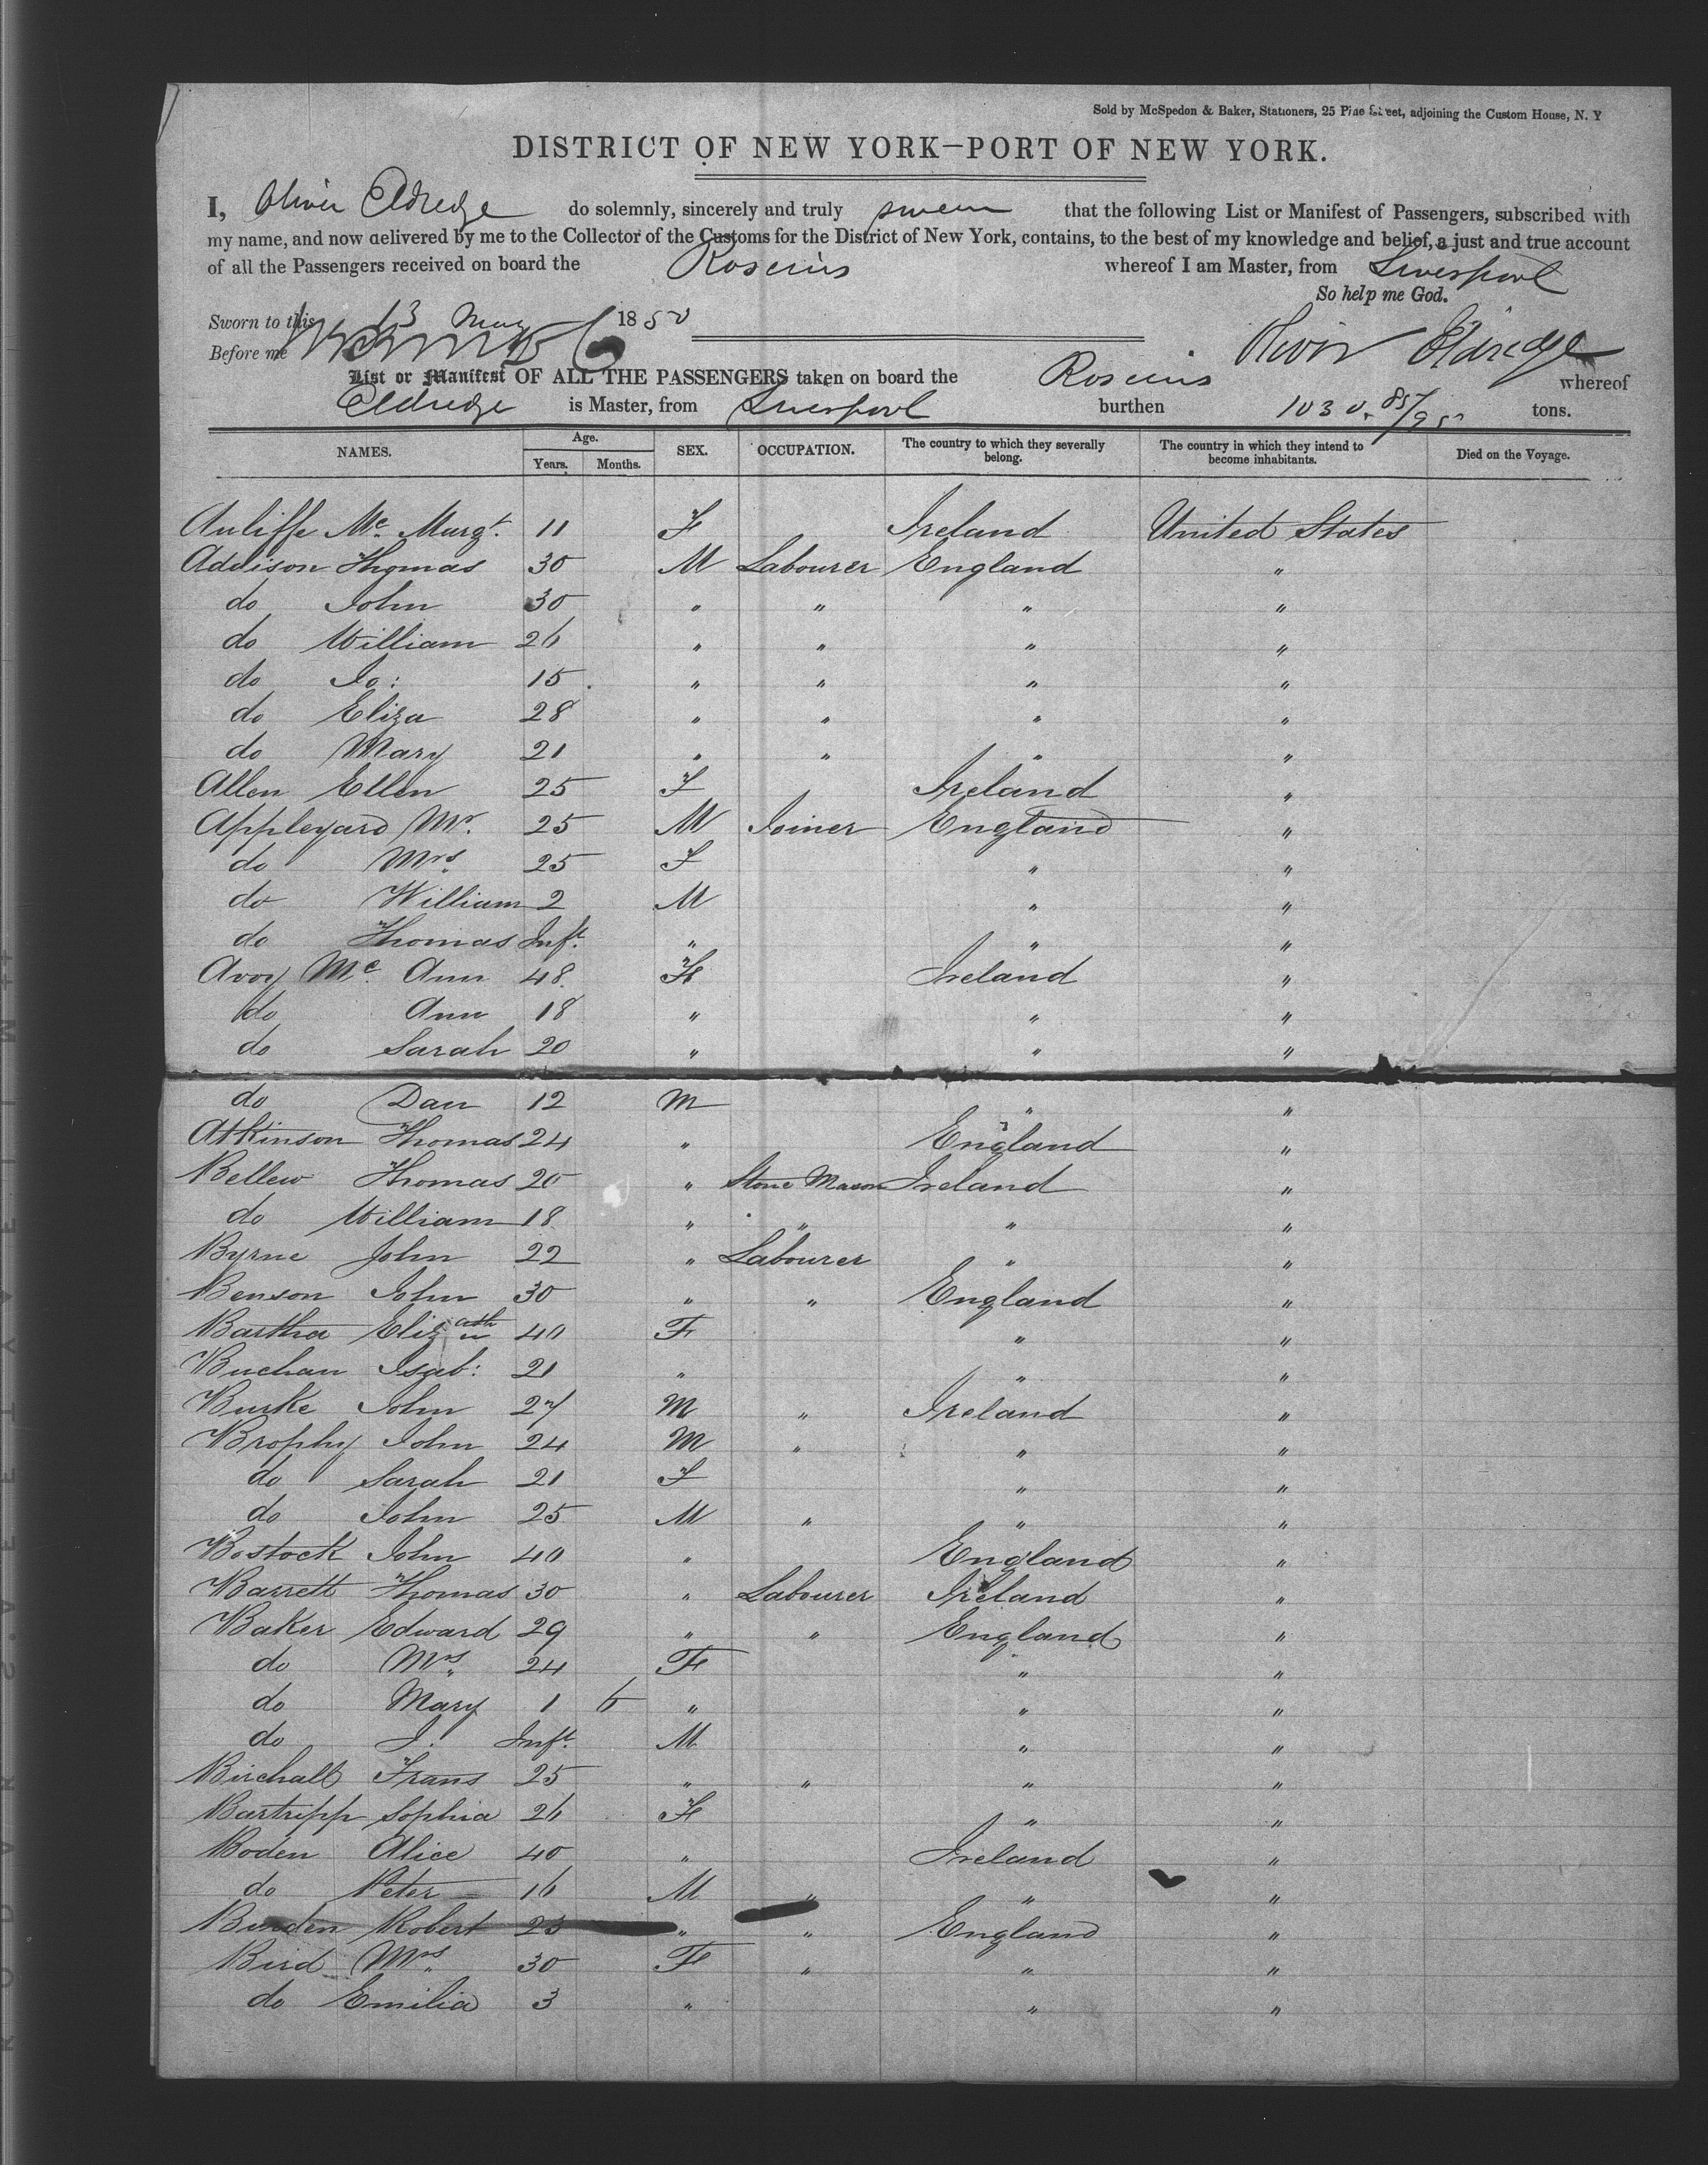 Sold by McSpedon & Baker, Stationers, 25 Pine Street, adjoining the Custom House, N. Y
DISTRICT OF NEW YORK—PORT OF NEW YORK.
I, Oliver Eldredge do solemnly, sincerely and truly swear that the following List or Manifest of Passengers, subscribed with
my name, and now delivered by me to the Collector of the Customs for the District of New York, contains, to the best of my knowledge and belief, a just and true account
of all the Passengers received on board the Roscius whereof I am Master, from Liverpool
So help me God.
Sworn to this 13 May 1850
Before me Oliver Eldredge
List or Manifest OF ALL THE PASSENGERS taken on board the Roscius whereof
Eldredge is Master, from Liverpool burthen 1030. 85/95 tons.
NAMES. Age. Years. Months. SEX. OCCUPATION. The country to which they severally belong. The country in which they intend to become inhabitants. Died on the Voyage.
Auliffe Mc. Margt. 11 F Ireland United States
Addison Thomas 30 M Labourer England "
do John 30 " " " "
do William 26 " " " "
do Jo: 15 " " " "
do Eliza 28 " " " "
do Mary 21 " " " "
Allen Ellen 25 F Ireland "
Appleyard Mr. 25 M Joiner England "
do Mrs. 25 F " "
do William 2 M " "
do Thomas Inft. " " "
Avoy Mc. Ann 48 F Ireland "
do Ann 18 " " "
do Sarah 20 " " "
do Dan 12 M " "
Atkinson Thomas 24 " England "
Bellew Thomas 20 " Stone Mason Ireland "
do William 18 " " " "
Byrne John 22 " Labourer " "
Benson John 30 " " England "
Bartha Eliz 40 F " "
Buchan Isab: 21 " " "
Burke John 27 M " Ireland "
Brophy John 24 M " " "
do Sarah 21 F " "
do John 25 M " " "
Bostock John 40 " England "
Barrett Thomas 30 " Labourer Ireland "
Baker Edward 29 " " England "
do Mrs. 24 F " "
do Mary 1 6 " " "
do J. Inft. M " "
Birchall Frans 25 " " " "
Bartripp Sophia 26 F " "
Boden Alice 40 " Ireland "
do Peter 16 M " " "
Burden Robert 25 " " England "
Bird Mrs. 30 F " " "
do Emilia 3 " " "